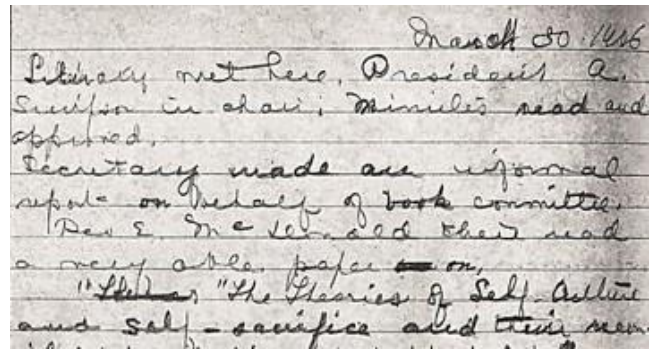 March 30. 1906
Literary met here, President A.
in chair; Minutes read and
approved.
Secretary made an informal
report on behalf of book committee.
Rev E. Mc then read
a very able paper on,
"The Theories of Self-Culture
and self-sacrifice and their